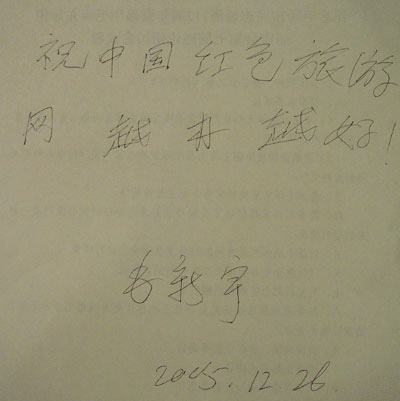 祝中国红色旅游
网越办越好!
毛新宇
2005.12.26